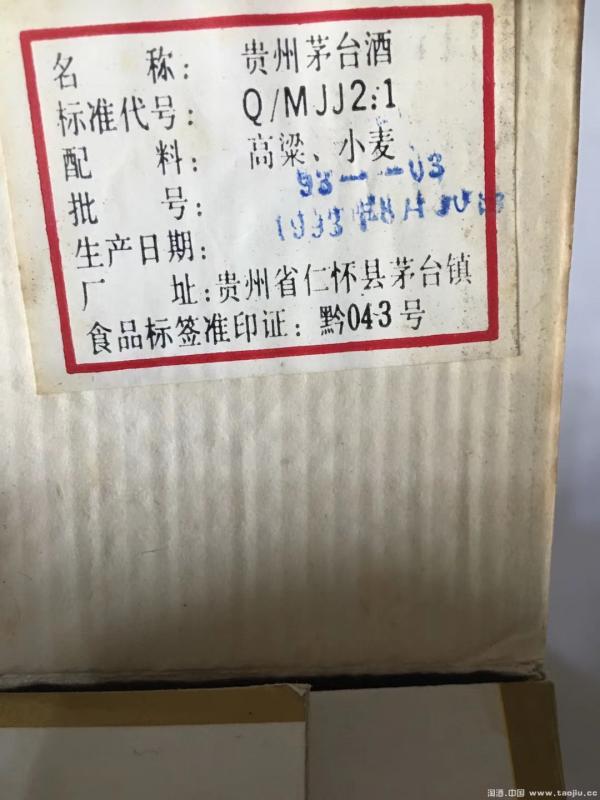 名 称: 贵州茅台酒
标准代号: Q/MJJ2:1
配 料: 高粱、小麦
批 号: 93-—03
生产日期: 1993年8月
厂 址:贵州省仁怀县茅台镇
食品标签准印证: 黔043号
淘酒.中国 www.taojiu.cc